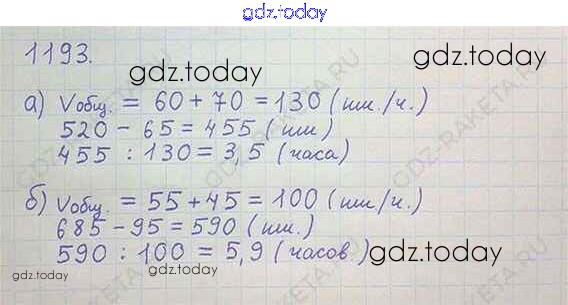 gdz.today
1193.
gdz.today
gdz.today
а) Vобщ. = 60 + 70 = 130 (км./ч.)
520 - 65 = 455 (км)
455 : 130 = 3,5 (часа)
б) Vобщ. = 55 + 45 = 100 (км./ч.)
685 - 95 = 590 (км.)
590 : 100 = 5,9 (часов.)
gdz.today
gdz.today
GDZ-RAKETA.RU
GDZ-RAKETA.RU